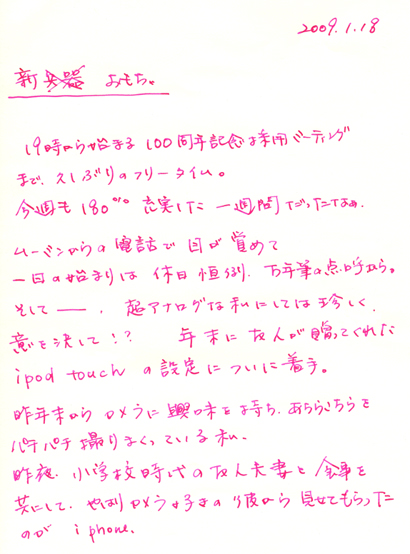 2009.1.18
新兵器 おもちゃ
19時から始まる 100周年記念は採用ミーティング
まで、久しぶりのフリータイム。
今週も 180% 充実した 一週間だったなぁ。
ムーミンからの電話で目が覚めて
一日の始まりは 休日恒例、万年筆の点呼から。
そして──、超アナログな私にしては珍しく、
意を決して!? 年末に友人が贈ってくれた
ipod touch の設定についに着手。
昨年末からカメラに興味を持ち、あちらこちらを
パチパチ撮りまくっている私、
昨夜、小学校時代の友人夫妻と食事を
共にして、やはりカメラ好きの彼から見せてもらった
のが iphone.